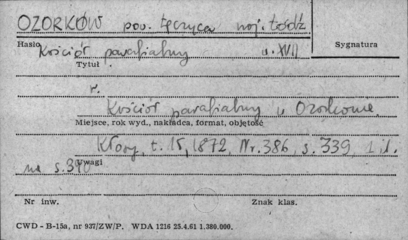 OZORKÓW pow. Łęczyca woj. Łódź
Hasło Kościół parafialny w. XVII Sygnatura
Tytuł
r.
Kościół parafialny w Ozorkowie.
Miejsce, rok wyd., nakładca, format, objętość
Kłosy, t. 15, 1872, Nr. 386, s. 339, 1 il.
na s. 340
Uwagi
Nr inw. Znak klas.
CWD - B-15a, nr 937/ZW/P. WDA 1216 25.4.61 1.380.000.